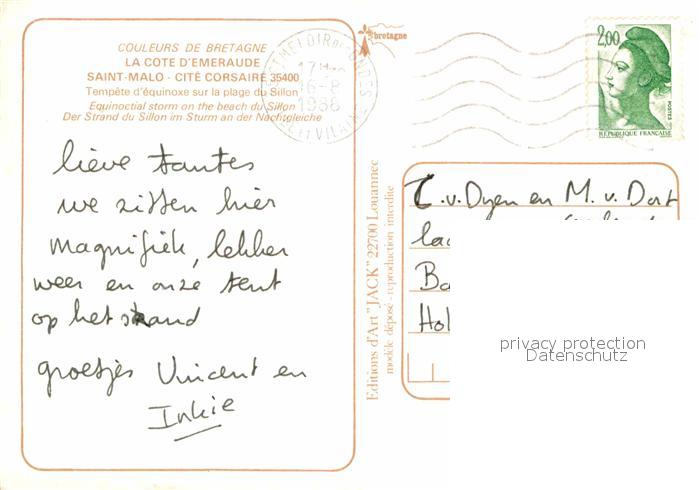 COULEURS DE BRETAGNE
LA COTE D'EMERAUDE
SAINT-MALO - CITÉ CORSAIRE 35400
Tempête d'équinoxe sur la plage du Sillon
Equinoctial storm on the beach du Sillon
Der Strand du Sillon im Sturm an der Nachtgleiche
lieve tantes
we zitten hier
magnifiek, lekker
weer en onze tent
op het strand
groetjes Vincent en
Inkie
Editions d'Art "JACK" 22700 Louannec
modèle déposé - reproduction interdite
bretagne
17H
16-8
1986
ET VILAINE
2,00
POSTES
RÉPUBLIQUE FRANÇAISE
v. Dyen en M. v. Dort
Hol
privacy protection
Datenschutz